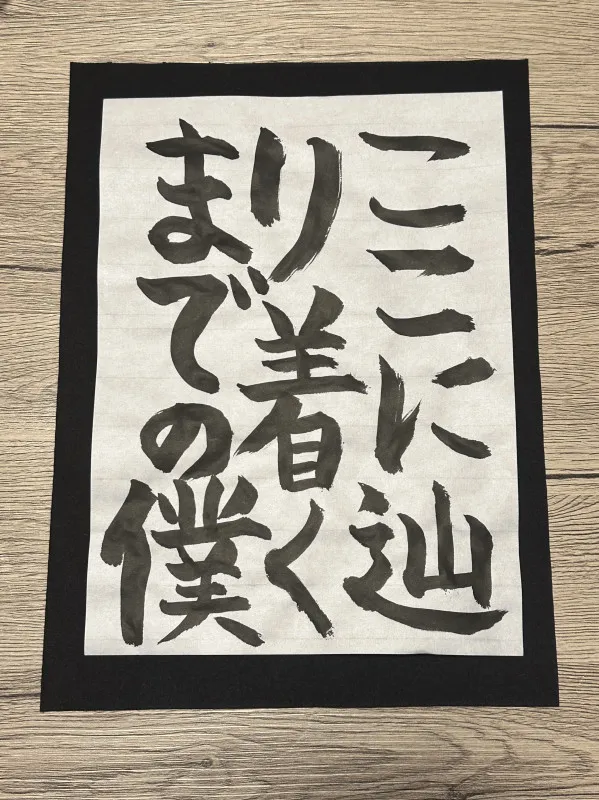 ここに辿
り着く
までの僕